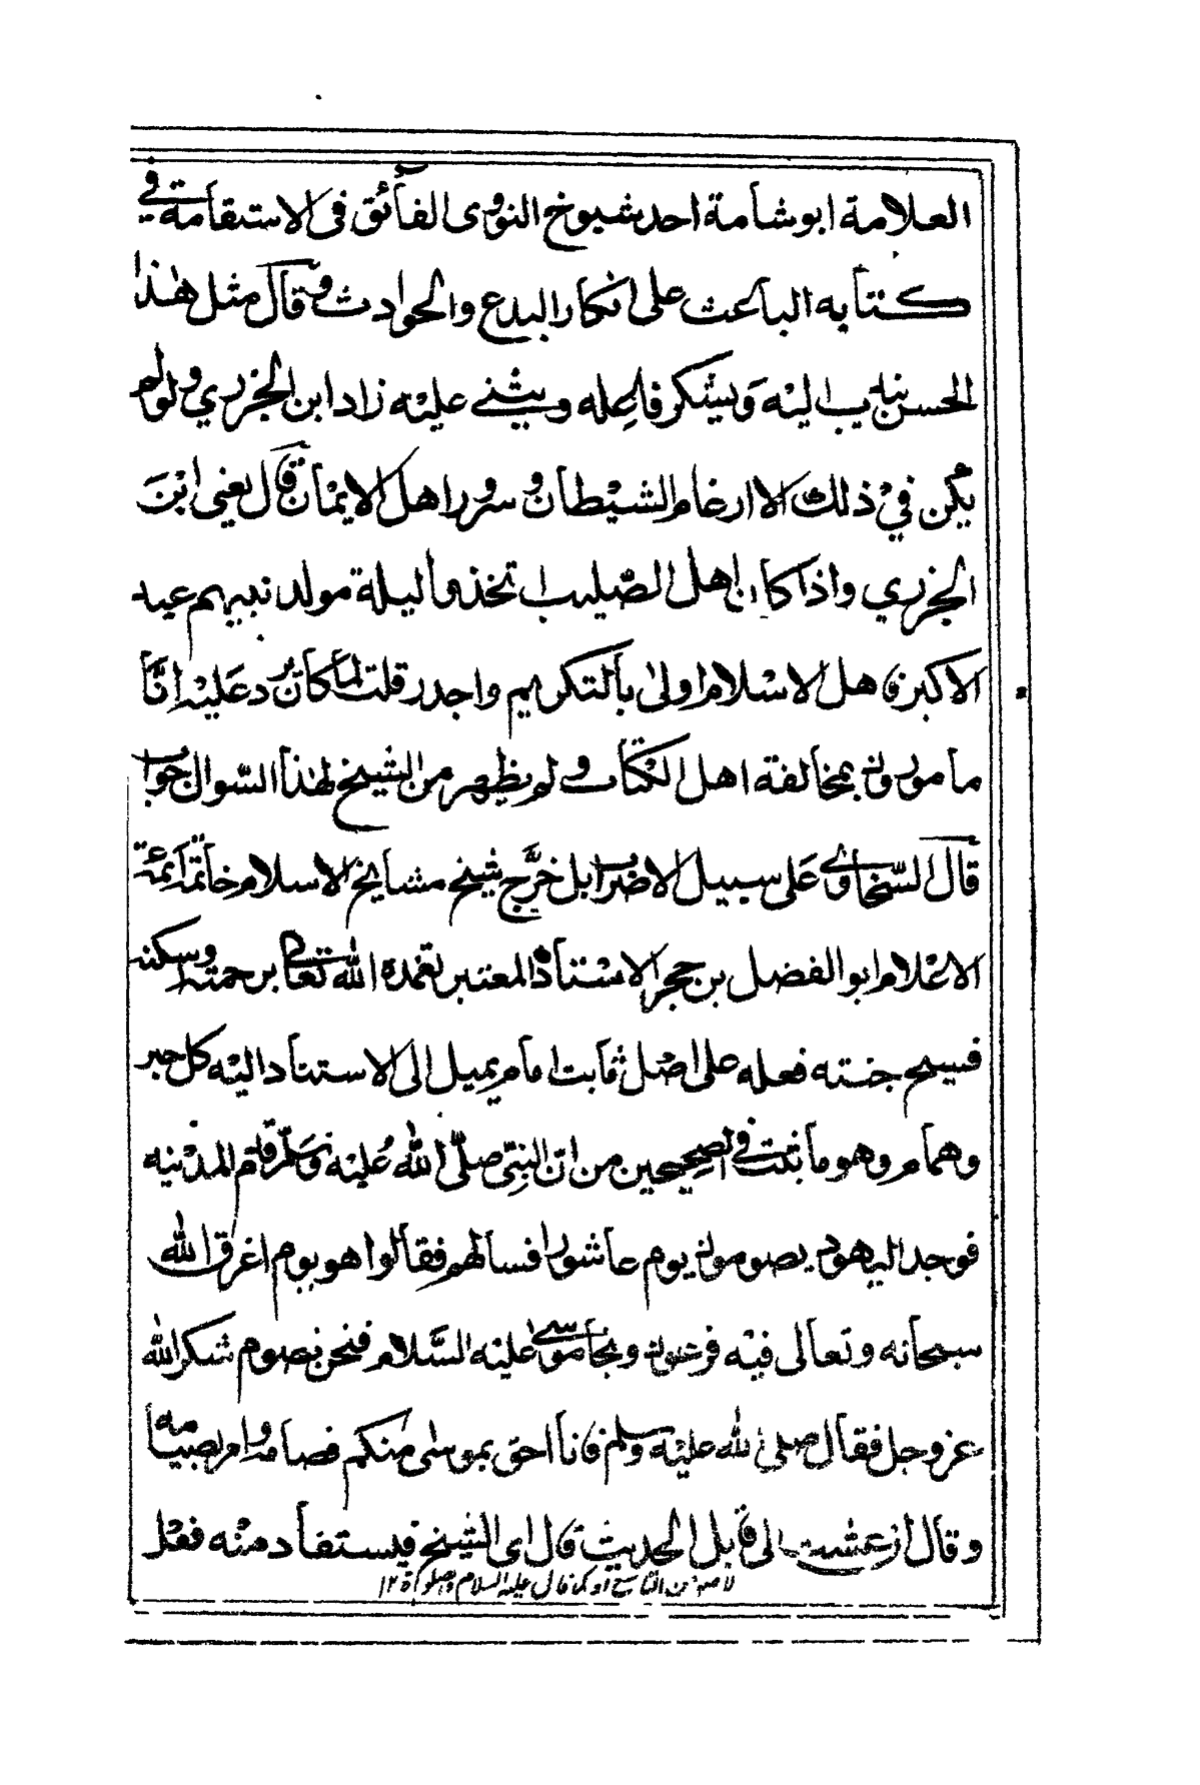 العلامة ابو شامة احد شيوخ النووى الفائق فى الاستقامة في
كتابه الباعث على انكار البدع والحوادث وقال مثل هذا
الحسن يندب اليه ويشكر فاعله ويثنى عليه زاد ابن الجزري ولو لم
يكن في ذلك الا ارغام الشيطان وسرور اهل الايمان قال يعنى ابن
الجزري واذا كان اهل الصليب اتخذوا ليلة مولد نبيهم عيد
الاكبر فاهل الاسلام اولى بالتكريم واجدر قلت لما كان يرد عليه انا
مامورون بمخالفة اهل الكتاب ولم يظهر من الشيخ لهذا السوال جواب
قال السخاوي على سبيل الاضراب بل خرّج شيخ مشايخ الاسلام خاتمة ائمة
الاعلام ابو الفضل بن حجر الاستاذ المعتبر تغمده الله تعالى برحمته واسكنه
فسيح جنته فعله على اصل ثابت امام يميل الى الاستناد اليه كل حبر
وهمام وهو ما ثبت فى الصحيحين من انّ النبيّ صلّى الله عليه وسلّم قدم المدينه
فوجد اليهود يصومون يوم عاشورا فسالهم فقالوا هو يوم اغرق الله
سبحانه وتعالى فيه فرعون ونجا موسى عليه السّلام فنحن نصوم شكرا لله
عز وجل فقال صلى الله عليه وسلم فانا احق بموسى منكم فصامه وامر بصيامه
وقال ان عشت الى قابل الحديث قال اى الشيخ فيستفاد منه فعل
لاصومن التاسع او كما قال عليه السلام والصلوة ١٢